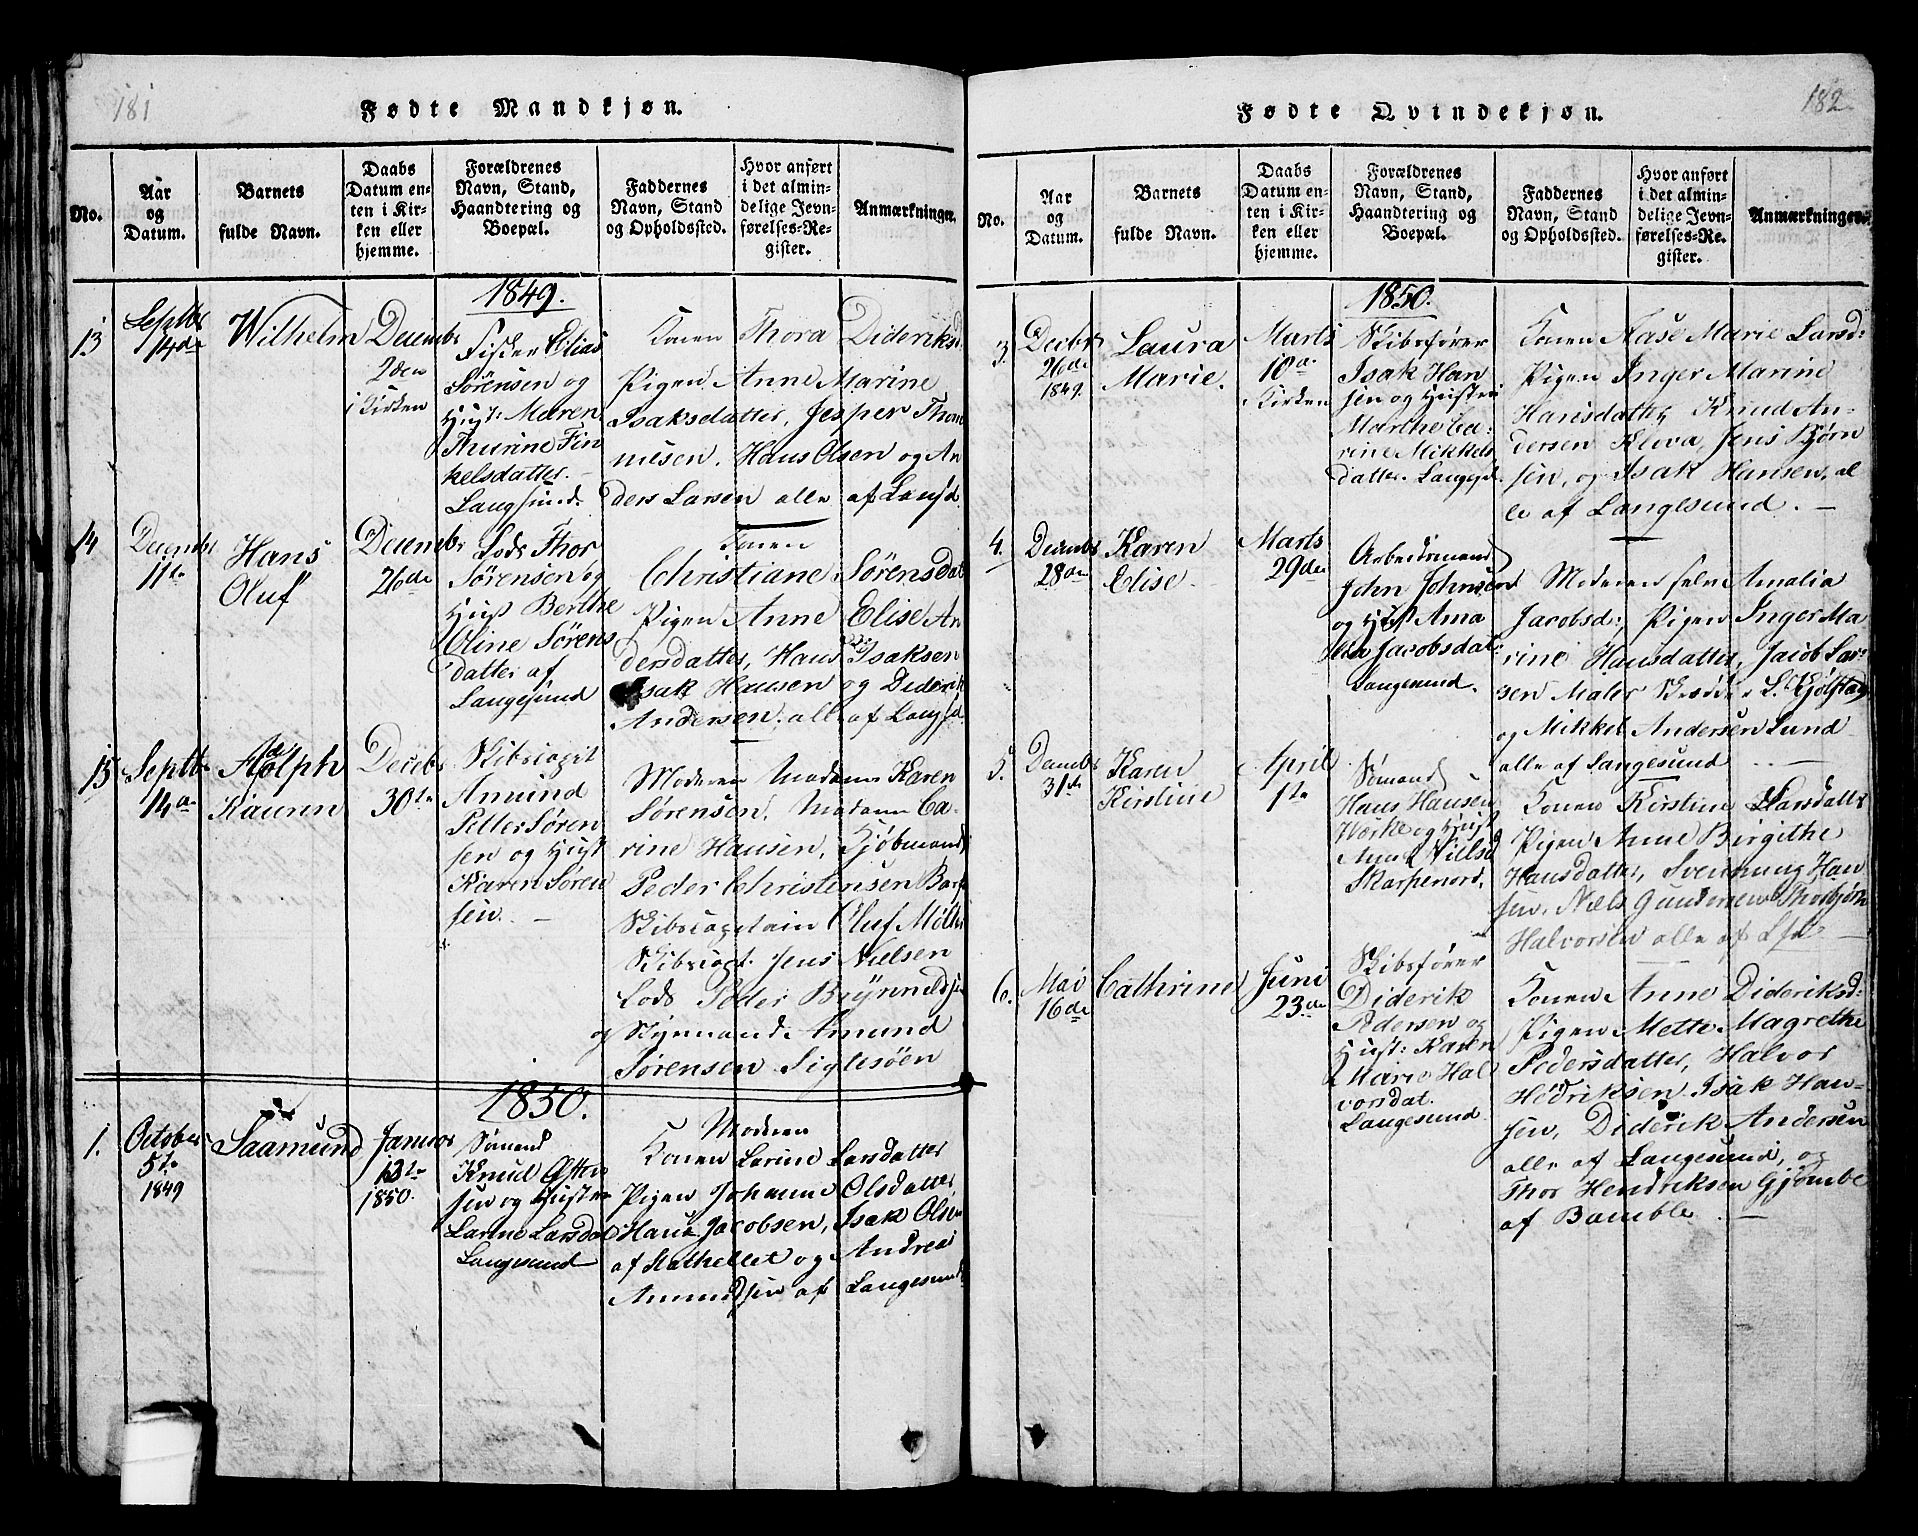 181
Fødte Mandkjøn.
No.
Aar
og
Datum.
Barnets
fulde Navn.
Daabs
Datum en-
ten i Kir-
ken eller
hjemme.
Forældrenes
Navn, Stand,
Haandtering og
Boepæl.
Faddernes
Navn, Stand
og Opholdssted.
Hvor anført
i det almin-
delige Jevn-
førelses-Re-
gister.
Anmærkninger.
1849.
13
Septbr
14de
Wilhelm
Decembr
2den
i Kirken
Fisker Elias
Sørensen og
Hust: Maren
Thurine Fin
kelsdatter
Langsund.
Konen Thora Dideriksd
Pigen Anne Marine
Isaksdatter, Jesper Thom
niesen. Hans Olsen og An
ders Larsen alle af Langsd.
14
Decembr
11te
Hans
Oluf
Decembr
26de
Lods Thor
Sørensen og
Hust Berthe
Oline Sørens
datter af
Langesund
Konen
Christiane Sørensdat
Pigen Anne Elise An
dersdatter, Hans Isaksen
Isak Hansen og Diderik
Andersen, alle af Langsd.
15
Septbr
14de
Adolph
Decbr
30te
Skibscapit
Amund
Petter Søren
sen og Hust
Karen Søren
sen. —
Moderen Madame Karen
Sørensen, Madame Ca-
rine Hansen, Kjøbmand
Peder Christensen
Skibscapitain Oluf
Skibscapt. Jens Nielsen
Lods Peder
og Styrmand Amund
Sørensen
1850.
1.
October
5te
1849
Saamund
Januar
13te
1850.
Sømand
Knud
sen og Hustru
Larine Larsdat
Langesund
Moderen
Konen Larine Larsdatter
Pigen Johanne Olsdatter,
Hans Jacobsen, Isak Olsen
af Stathellet og Andreas
Amundsen af Langesund
182
Fødte Qvindekjøn.
No.
Aar
og
Datum.
Barnets
fulde Navn.
Daabs
Datum en-
ten i Kir-
ken eller
hjemme.
Forældrenes
Navn, Stand,
Haandtering og
Boepæl.
Faddernes
Navn, Stand
og Opholdssted.
Hvor anført
i det almin-
delige Jevn-
førelses-Re-
gister.
Anmærkninger.
1850.
3.
Decbr
26de
1849.
Laura
Marie.
Marts
10de
i Kirken
Skibsfører
Isak Han
sen og Hustru
Marthe Ca-
rine Mikkels
datter. Langesd.
Konen Aase Marie Larsd:
Pigen Inger Marine
Hansdatter, Knud An-
dersen Kleva, Jens Bjørn
sen, og Isak Hansen, al
le af Langesund. —
4.
Decembr
28de
Karen
Elise.
Marts
29de
Arbeidsmand
John Johnsen
og Hust Ama
lia Jacobsdat.
Langesund.
Moderen selv Amalia
Jacobsd:, Pigen Inger Ma
rine Hansdatter, Jacob Lar-
sen Maler
og Mikkel Andersen Lund
alle af Langesund —
5.
Decembr
31te
Karen
Kirstine
April
1te
Sømand
Hans Hansen
og Hust
Anne Nielsd
Skarpenord.
Konen Kirstine Larsdatter
Pigen Anne Birgithe
Hansdatter, Svennung Han
sen, Niels Gundersen & Thorbjørn
Halvorsen alle af Lsd —
6.
Mai
16de
Cathrine
Juni
23de
Skibsfører
Diderik
Pedersen og
Hust: Karen
Marie Hal
vorsdat.
Langesund
Konen Anne Dideriksd:
Pigen Mette Magrethe
Pedersdatter, Halvor
Hedriksen, Isak Han-
sen, Diderik Andersen
alle af Langesund, og
Thor Hendriksen
af Bamble. —